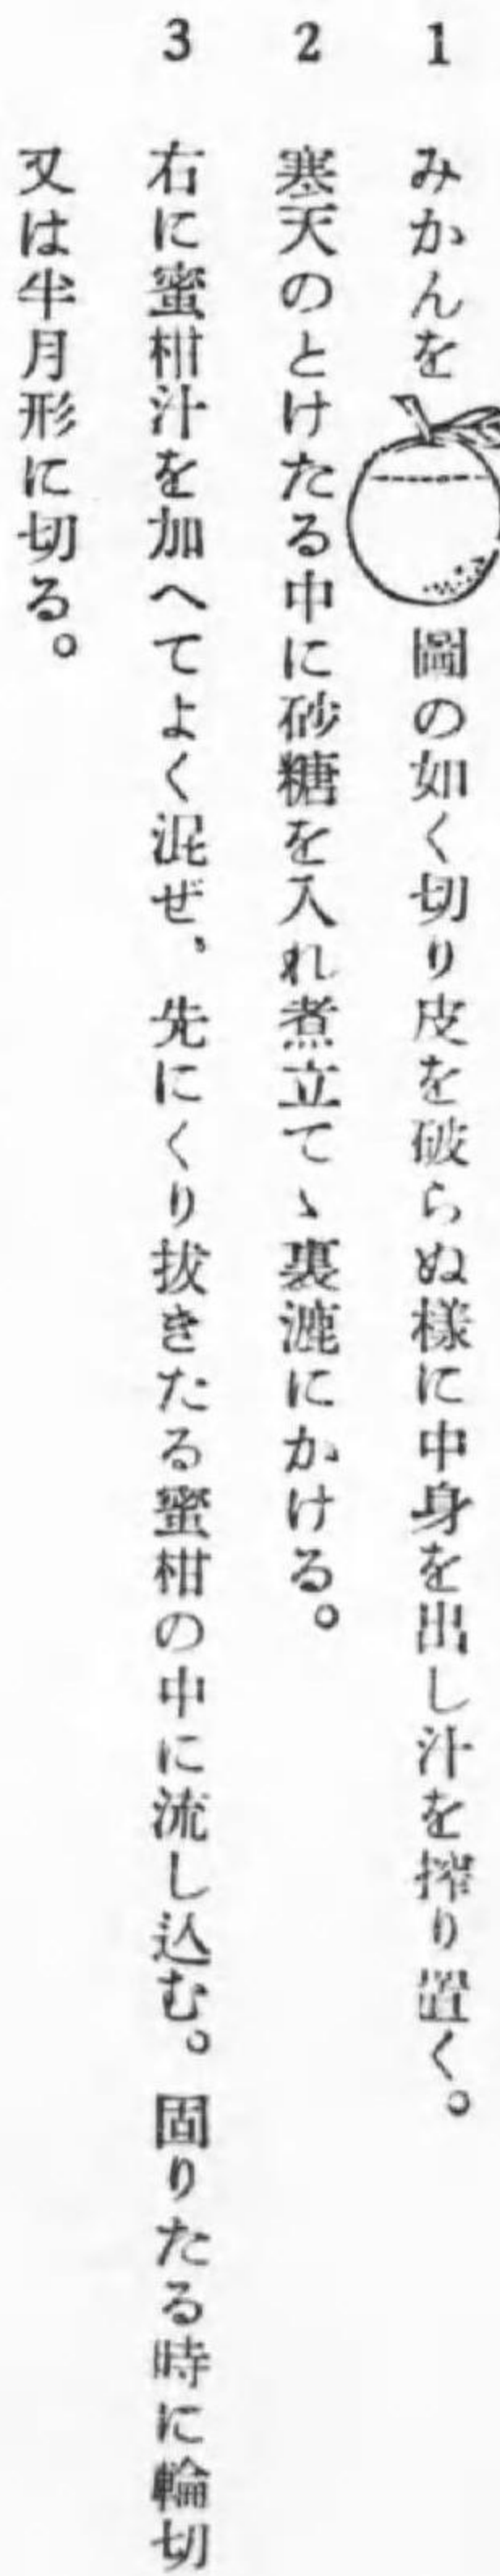 1 みかんを圖の如く切り皮を破らぬ様に中身を出し汁を搾り置く。
2 寒天のとけたる中に砂糖を入れ煮立てゝ裏漉にかける。
3 右に蜜柑汁を加へてよく混ぜ、先にくり抜きたる蜜柑の中に流し込む。固りたる時に輪切
又は半月形に切る。